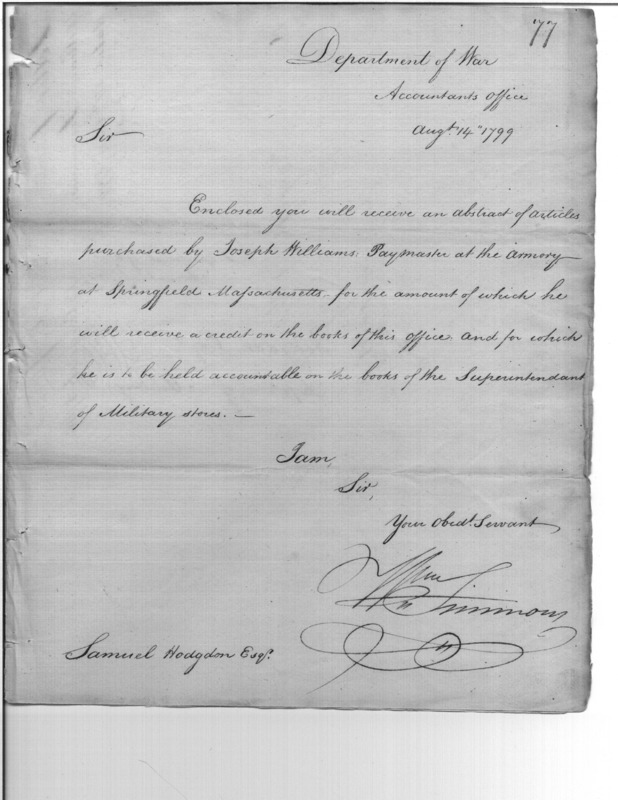 77
Department of War
Accountants Office
Augt. 14th 1799
Sir
Enclosed you will receive an abstract of articles
purchased by Joseph Williams, Paymaster at the armory
at Springfield Massachusetts for the amount of which he
will receive a credit on the books of this office, and for which
he is to be held accountable on the books of the Superintendant
of Military stores. —
I am,
Sir,
Your Obedt. Servant
Wm Simmons
Samuel Hodgdon Esqr.